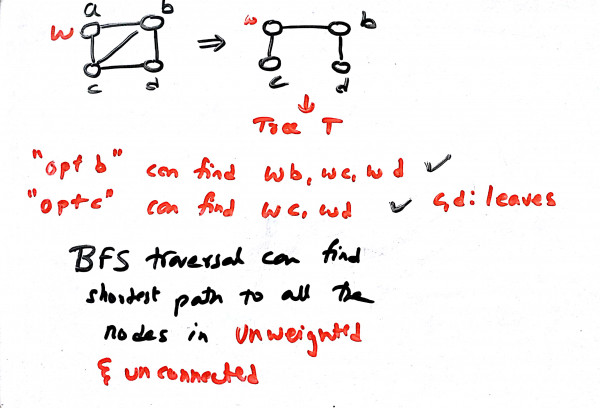 a b
w
c d
⇒
w b
c d
↓
Tree T
"opt b" can find wb, wc, wd ✓
"opt c" can find wc, wd ✓ c,d: leaves
BFS traversal can find
shortest path to all the
nodes in unweighted
& unconnected